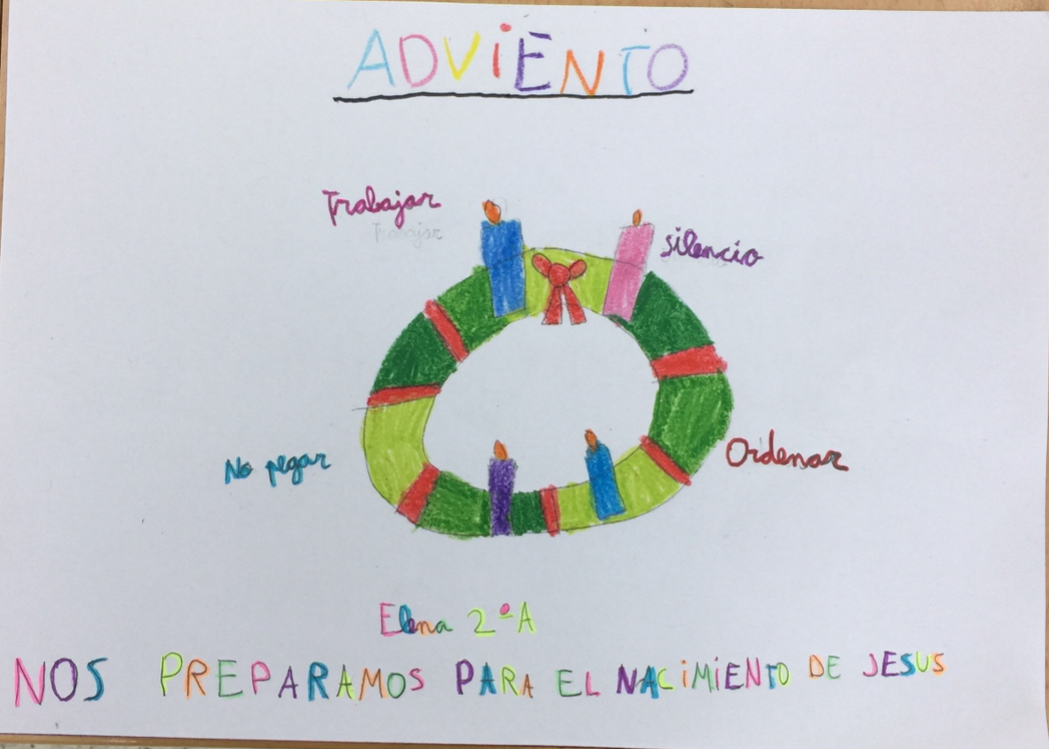 ADViENTO
Trabajar
Trabajar
silencio
No pegar
Ordenar
Elena 2ºA
NOS PREPARAMOS PARA EL NACiMiENTO DE JESUS